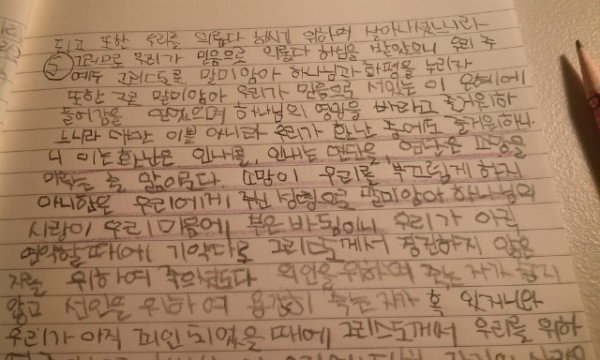 되고 또한 우리를 의롭다 하시기 위하여 살아나셨느니라
⑤ 그러므로 우리가 믿음으로 의롭다 하심을 받았으니 우리 주
예수 그리스도로 말미암아 하나님과 화평을 누리자
또한 그로 말미암아 우리가 믿음으로 서있는 이 은혜에
들어감을 얻었으며 하나님의 영광을 바라고 즐거워하
느니라 다만 이뿐 아니라 우리가 환난 중에도 즐거워하나
니 이는 환난은 인내를, 인내는 연단을, 연단은 소망을
이루는 줄 앎이로다 소망이 우리를 부끄럽게 하지
아니함은 우리에게 주신 성령으로 말미암아 하나님의
사랑이 우리 마음에 부은 바 됨이니 우리가 아직
연약할 때에 기약대로 그리스도께서 경건하지 않은
자를 위하여 죽으셨도다 의인을 위하여 죽는 자가 쉽지
않고 선인을 위하여 용감히 죽는 자가 혹 있거니와
우리가 아직 죄인 되었을 때에 그리스도께서 우리를 위하